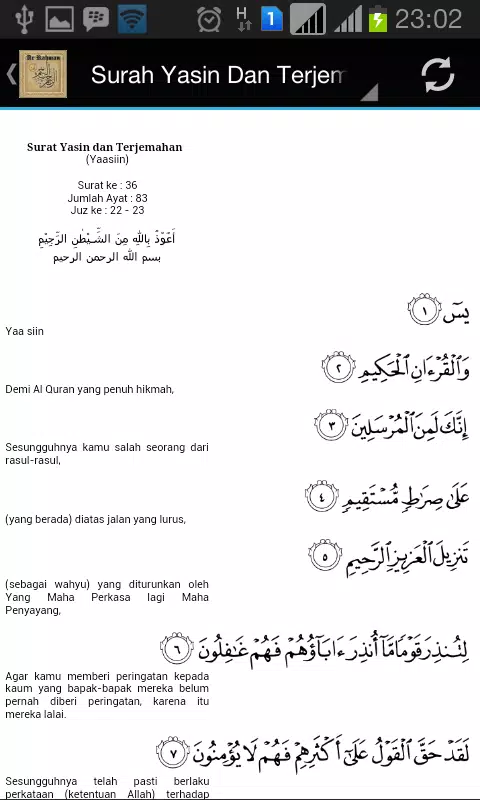 H
1
23:02
Ar-Rahman
Surah Yasin Dan Terjem
Surat Yasin dan Terjemahan
(Yaasiin)
Surat ke : 36
Jumlah Ayat : 83
Juz ke : 22 - 23
أَعُوْذُ بِاللهِ مِنَ الشَّيْطٰنِ الرَّجِيْمِ
بسم الله الرحمن الرحيم
يسٓ ١
Yaa siin
وَٱلْقُرْءَانِ ٱلْحَكِيمِ ٢
Demi Al Quran yang penuh hikmah,
إِنَّكَ لَمِنَ ٱلْمُرْسَلِينَ ٣
Sesungguhnya kamu salah seorang dari
rasul-rasul,
عَلَىٰ صِرَٰطٍ مُّسْتَقِيمٍ ٤
(yang berada) diatas jalan yang lurus,
تَنزِيلَ ٱلْعَزِيزِ ٱلرَّحِيمِ ٥
(sebagai wahyu) yang diturunkan oleh
Yang Maha Perkasa lagi Maha
Penyayang,
لِتُنذِرَ قَوْمًا مَّآ أُنذِرَ ءَابَآؤُهُمْ فَهُمْ غَٰفِلُونَ ٦
Agar kamu memberi peringatan kepada
kaum yang bapak-bapak mereka belum
pernah diberi peringatan, karena itu
mereka lalai.
لَقَدْ حَقَّ ٱلْقَوْلُ عَلَىٰٓ أَكْثَرِهِمْ فَهُمْ لَا يُؤْمِنُونَ ٧
Sesungguhnya telah pasti berlaku
perkataan (ketentuan Allah) terhadap